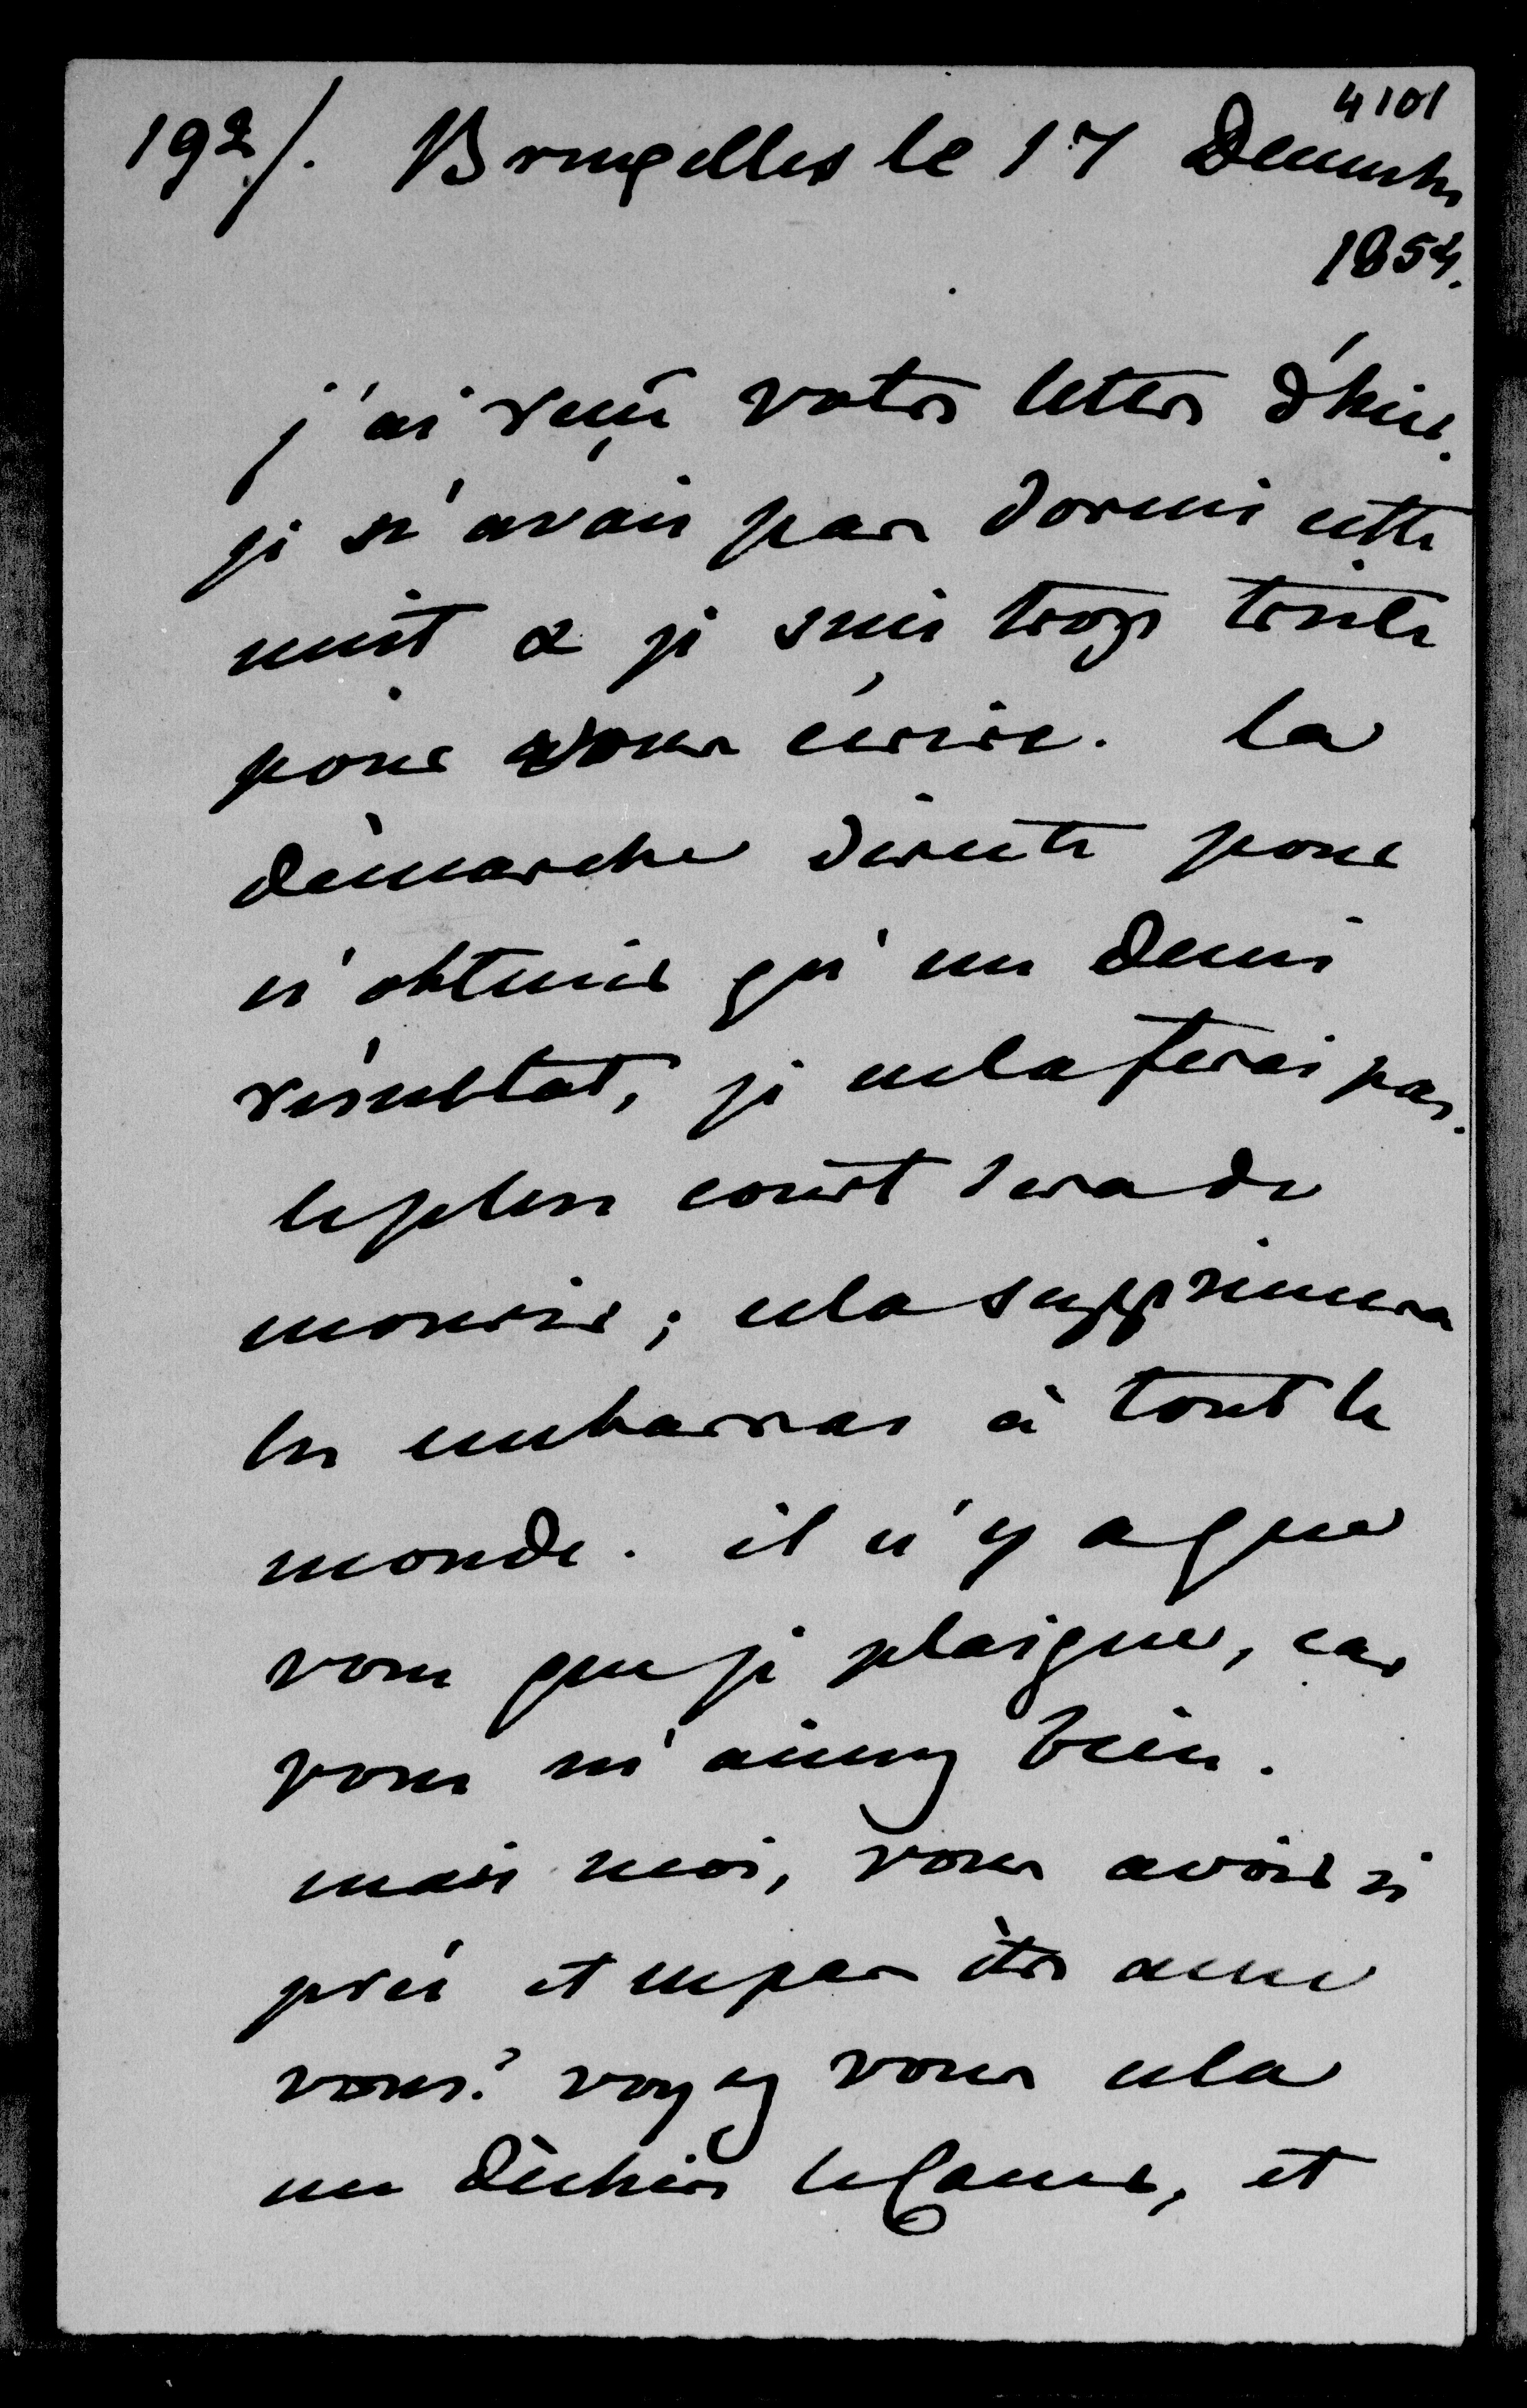 4101
192/. Bruxelles le 17 Decembre
1854.
j'ai reçu votre lettre d'hier.
je n'avais pas dormi cette
nuit & je suis trop triste
pour vous écrire. la
démarche directe pour
n'obtenir qu'un demi
résultat, je ne la ferai pas.
le plus court sera de
mourir ; cela supprimera
les embarras à tout le
monde. il n'y a que
vous que je plaigne, car
vous m'aimez bien.
mais moi, vous avoir si
près et ne pas être avec
vous? voyez vous cela
me déchire le cœur, et